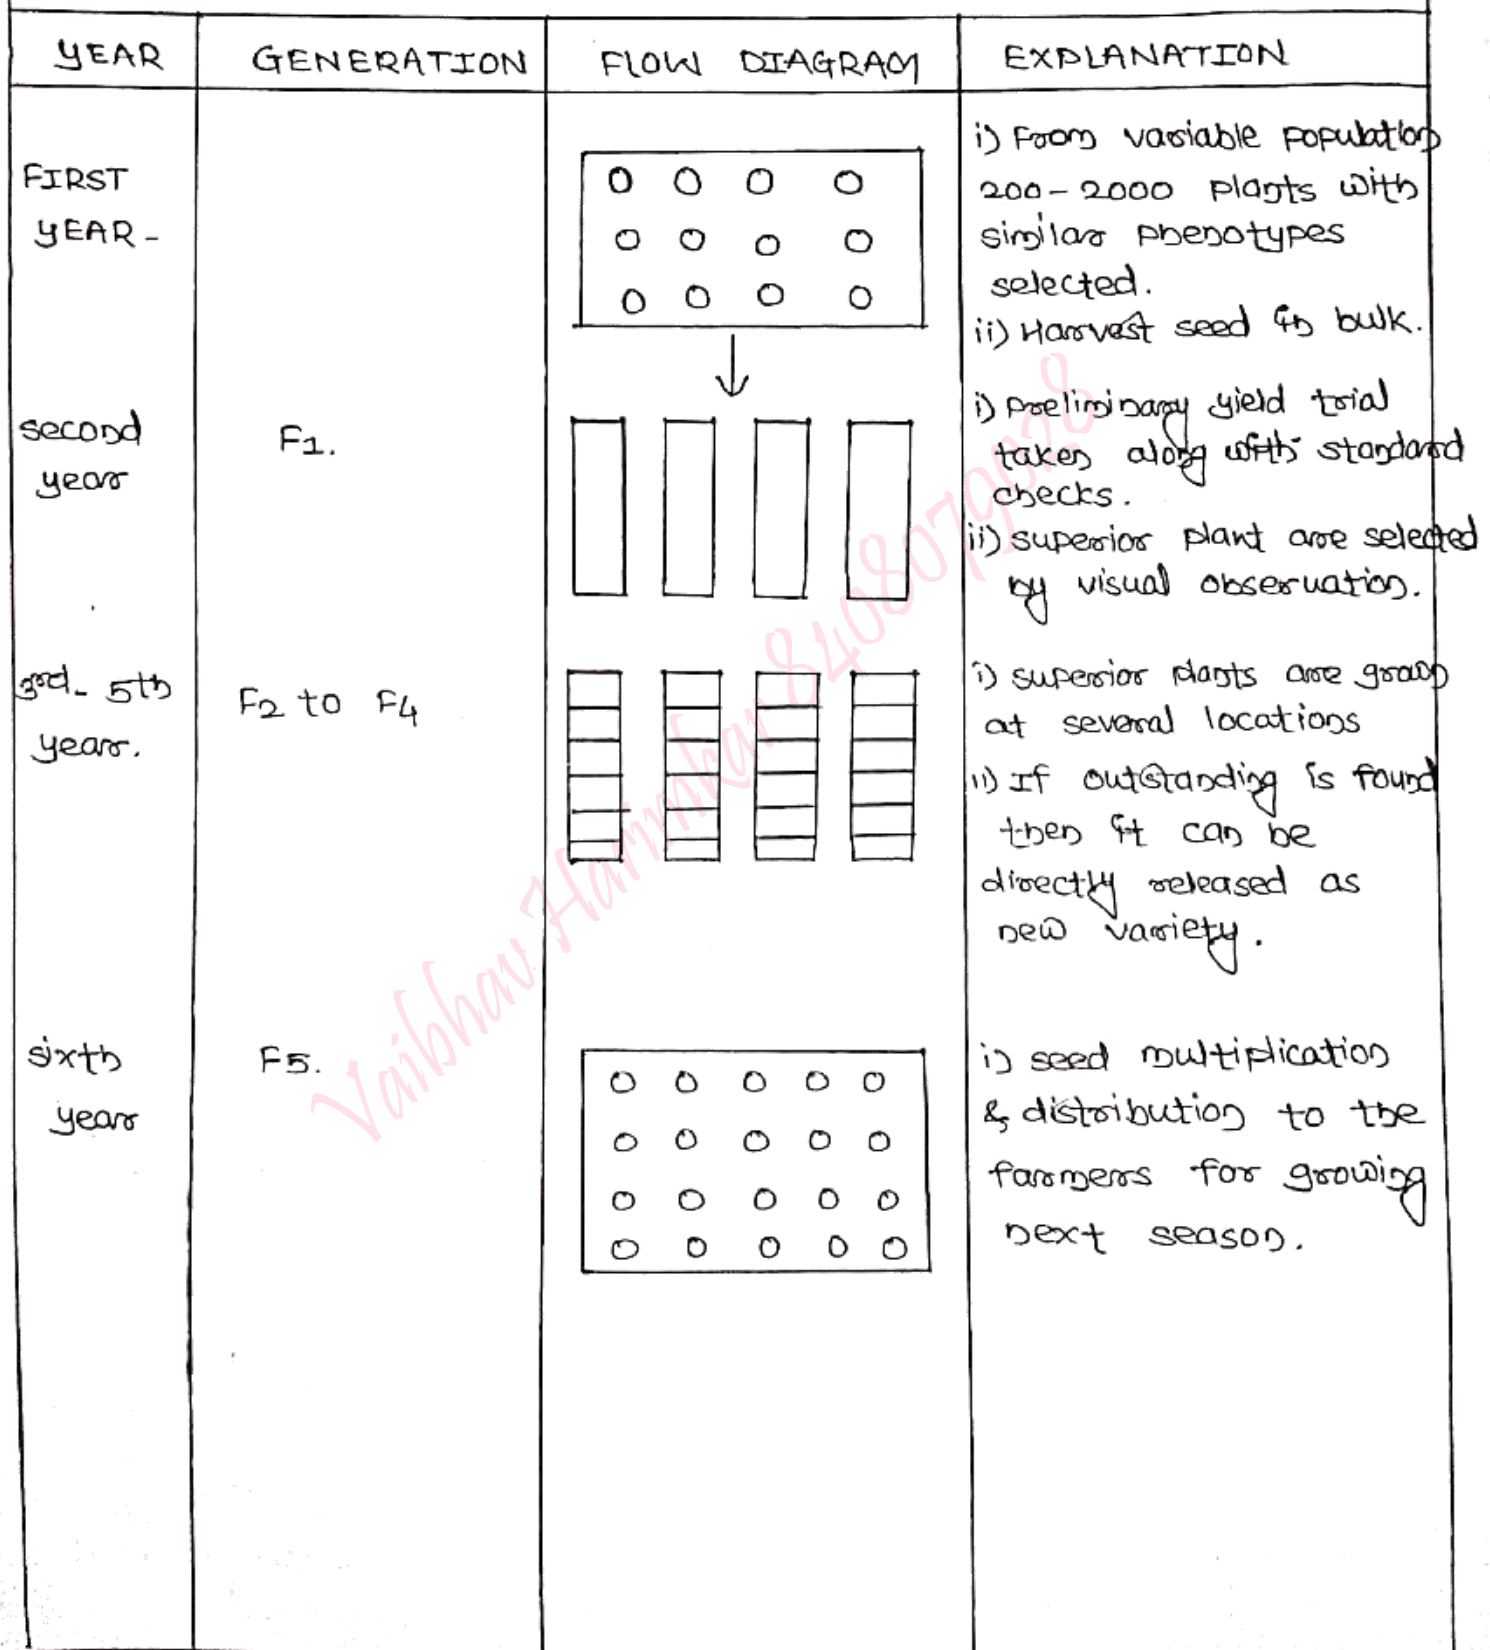 YEAR GENERATION FLOW DIAGRAM EXPLANATION
FIRST
YEAR-
i) From variable population
200-2000 plants with
similar phenotypes
selected.
ii) Harvest seed in bulk.
second
year
F1.
i) preliminary yield trial
taken along with standard
checks.
ii) superior plant are selected
by visual observation.
3rd- 5th
year.
F2 to F4
i) superior plants are grown
at several locations
ii) If outstanding is found
then it can be
directly released as
new variety.
sixth
year
F5.
i) seed multiplication
& distribution to the
farmers for growing
next season.
Vaibhav Harinkar 8408079028